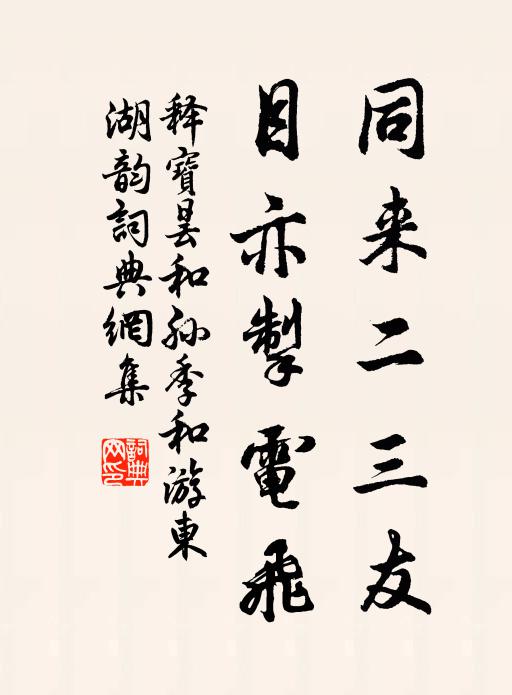 同来二三友
目亦掣電飛
释寶曇和孙季和游東
湖韵詞典網集
詞典网印